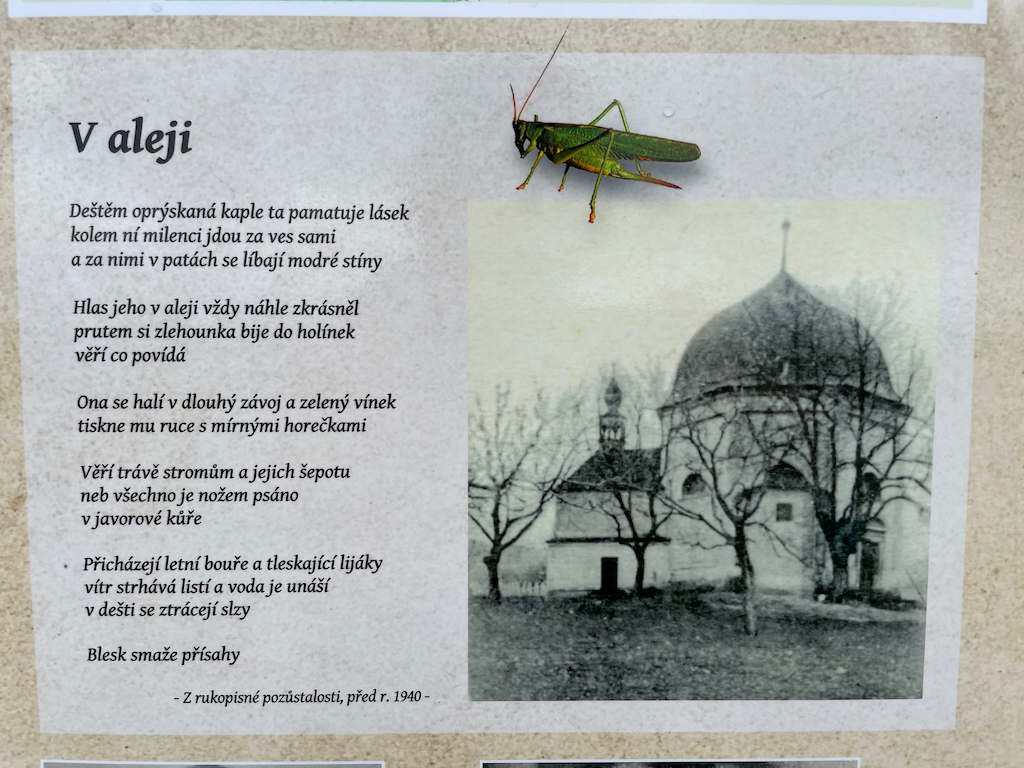 V aleji
Deštěm oprýskaná kaple ta pamatuje lásek
kolem ní milenci jdou za ves sami
a za nimi v patách se líbají modré stíny
Hlas jeho v aleji vždy náhle zkrásněl
prutem si zlehounka bije do holínek
věří co povídá
Ona se halí v dlouhý závoj a zelený vínek
tiskne mu ruce s mírnými horečkami
Věří trávě stromům a jejich šepotu
neb všechno je nožem psáno
v javorové kůře
Přicházejí letní bouře a tleskající lijáky
vítr strhává listí a voda je unáší
v dešti se ztrácejí slzy
Blesk smaže přísahy
- Z rukopisné pozůstalosti, před r. 1940 -